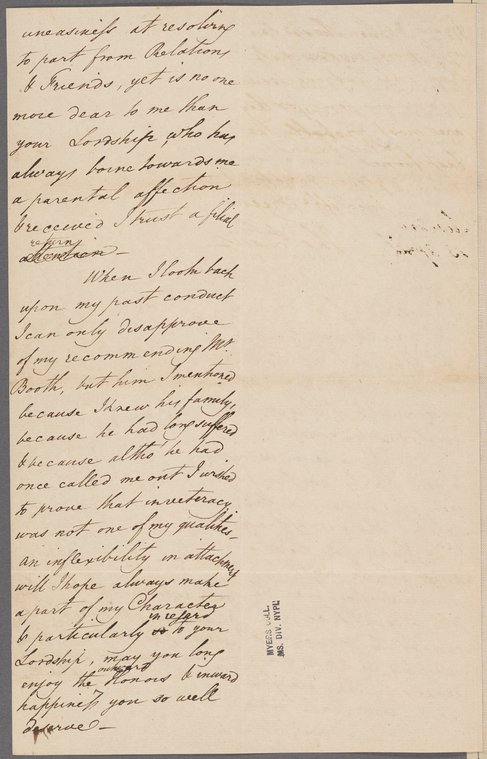 uneasiness at resolving
to part from Relations
& Friends, yet is no one
more dear to me than
your Lordship, who has
always borne towards me
a parental affection
& received I trust a filial
return
attention —
When I look back
upon my past conduct
I can only disapprove
of my recommending Mr.
Booth, but him I mentioned
because I knew his family,
because he had long suffered
& because altho' he had
once called me out I wished
to prove that inveteracy
was not one of my qualities.
an inflexibility in attachment
will I hope always make
a part of my Character
in regard
& particularly to your
Lordship, may you long
outward
enjoy the Honors & inward
happiness you so well
deserve —
MYERS COLL.
MS. DIV. NYPL